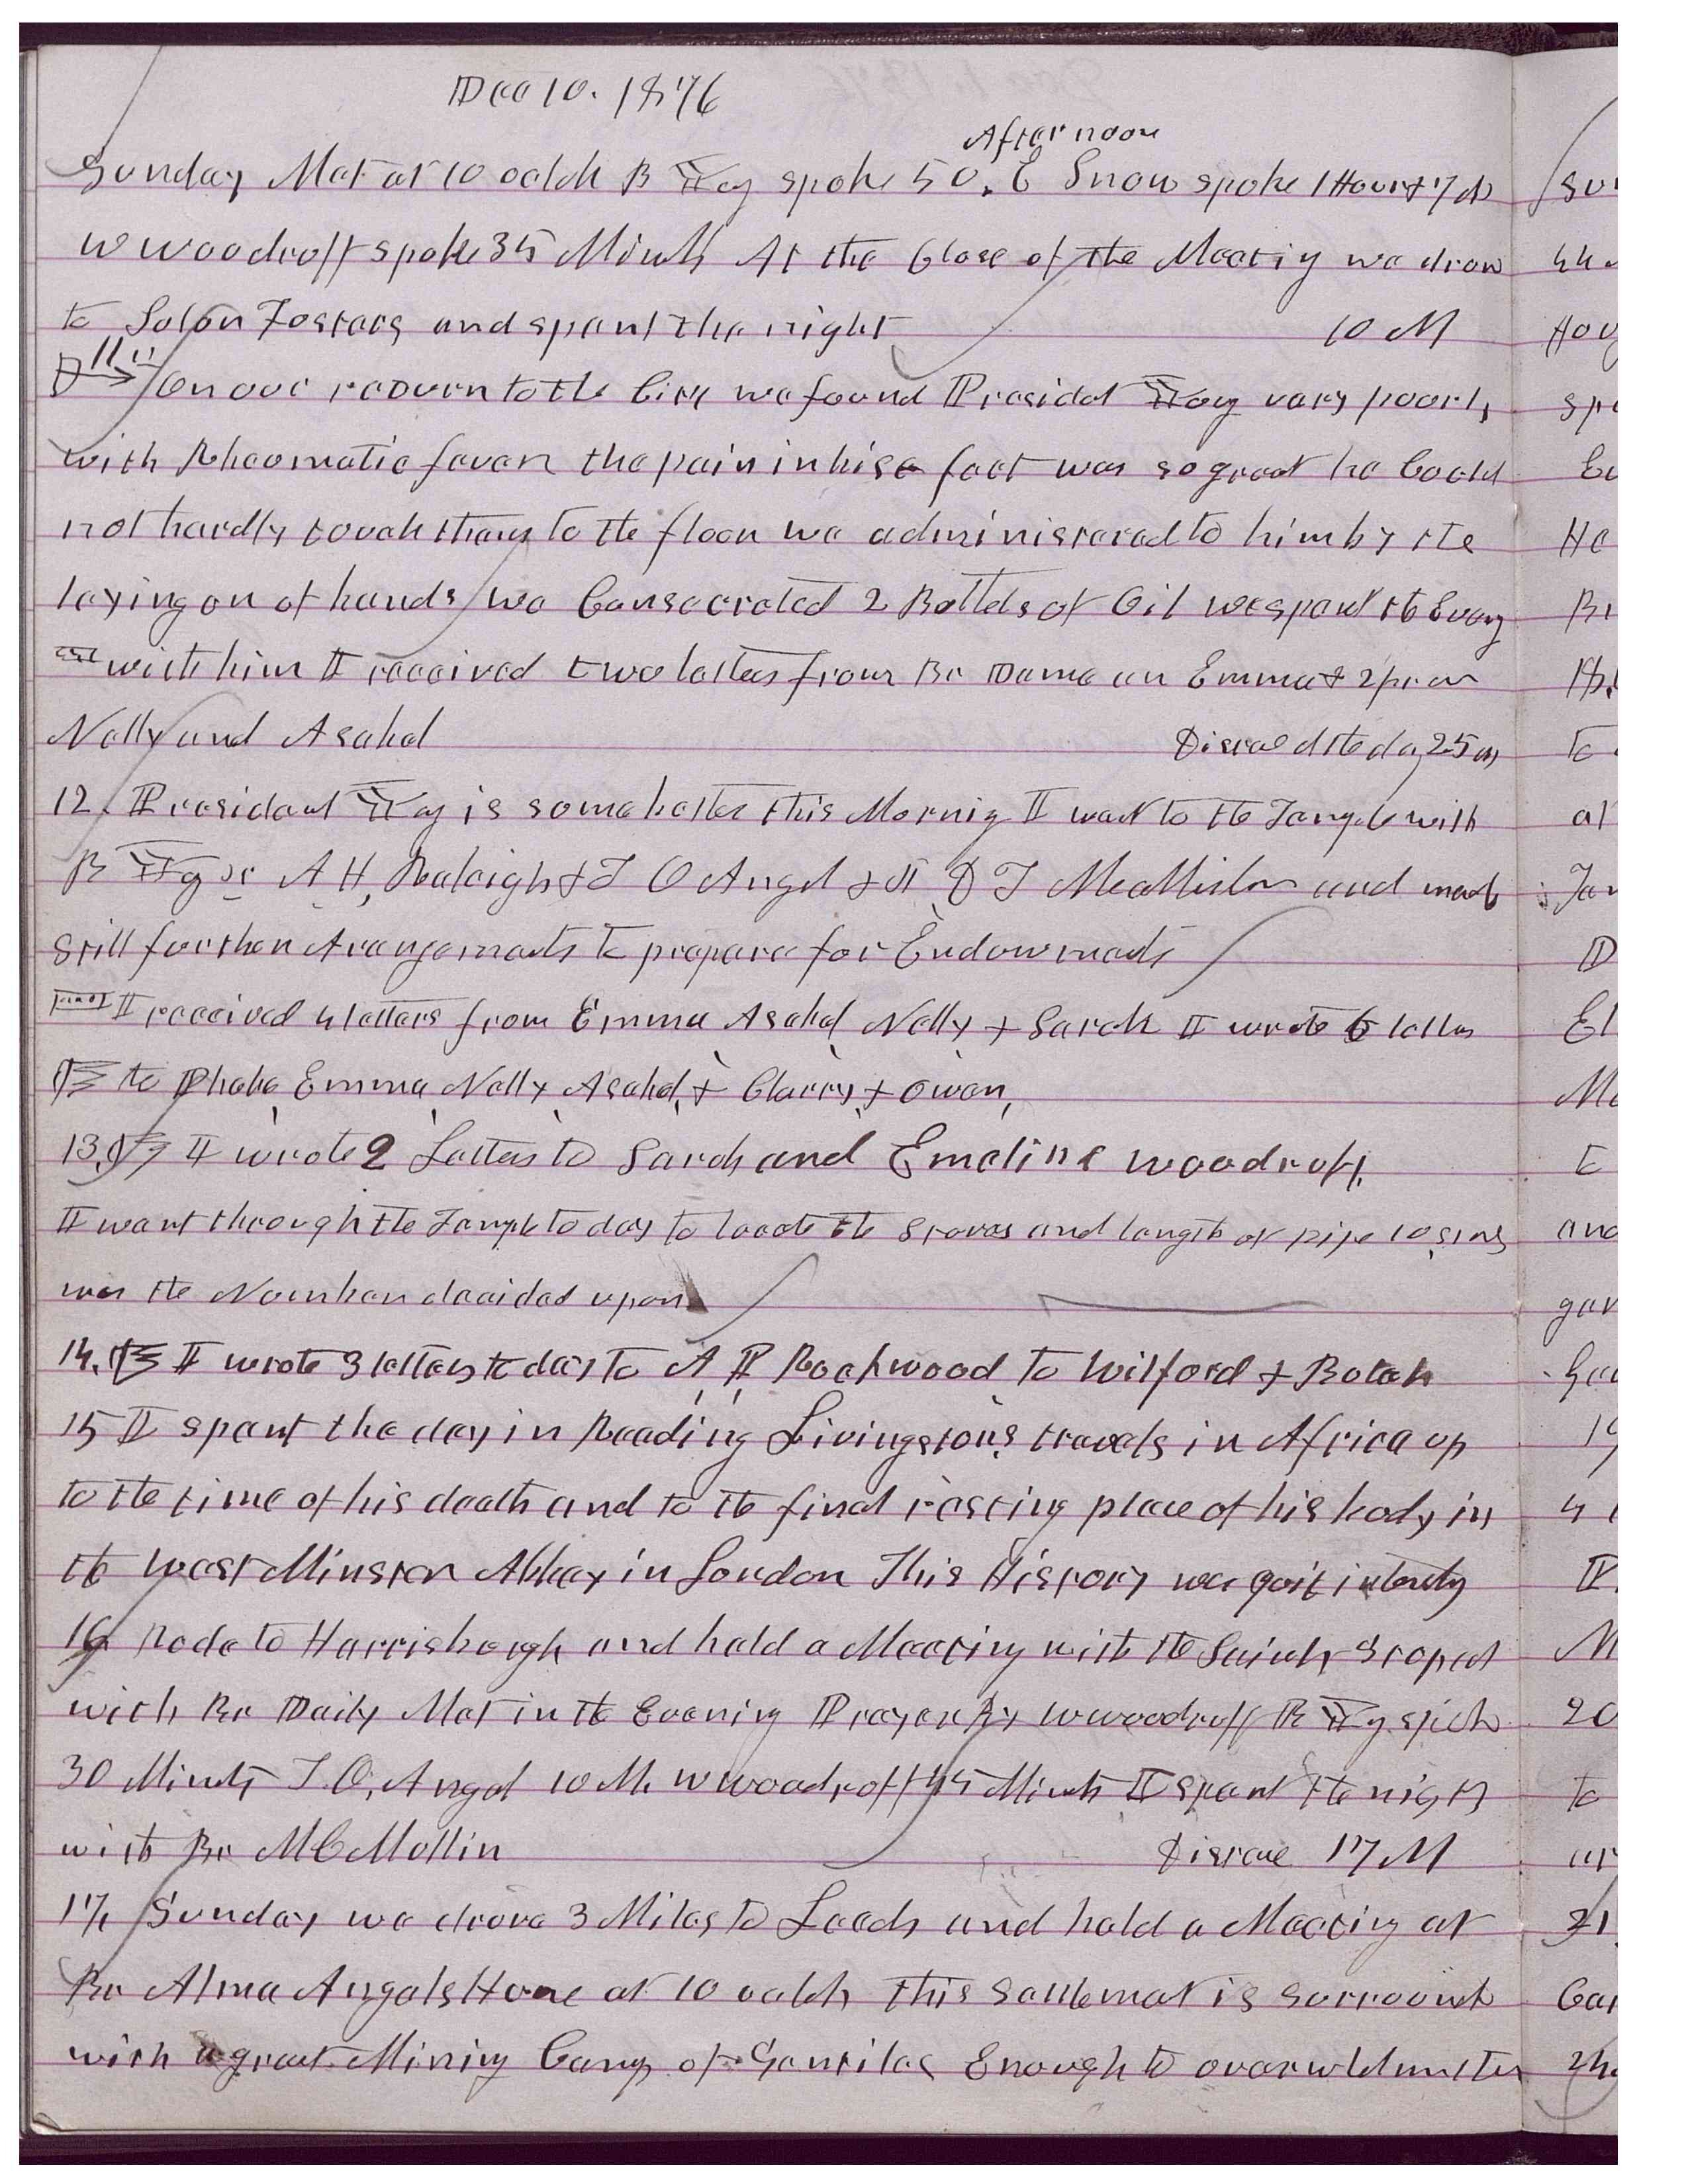 Dec 10. 1876
Afternoon
Sunday Met at 10 oclok B Yg spoke 50. E Snow spoke 1 Hour & 7 m
W Woodruff spoke 35 Minuts At the Close of the Meetig we drove
to Solon Fosters and spent the night 10 M
11 On our return to the City we found Presidet Yog very poorly
with Rheomatic fever the pain in his feet was so great he Could
not hardly touch them to the floor we administered to him by the
laying on of hands we Consecrated 2 Bottels of Oil we spent the Eveng
with him I received two letters from Br Dame an Emma & 2 from
Nelly and Asahel Distance of the day 25 m
12. President Yog is some better this Mornig I went to the Temple with
B Yg A H, Raleigh & T O Angel & D T McAllister and made
still further Arangements to prepare for Endowments
I received 4 letters from Emma Asahel Nelly & Sarah I wrote 6 letters
to Phebe Emma Nelly Asahel & Clarry & Owen,
13, I wrote 2 Letters to Sarah and Emeline Woodruff,
I went through the Temple to day to locate the stoves and length of pipe 10 stovs
was the Number decided upon
14. I wrote 3 letters to day to A P Rockwood to Wilford & Bulah
15 I spent the day in Reading Livingstons travels in Africa up
to the time of his death and to the final resting place of his body in
the West Minster Abbey in London This History was quit intersty
16 Rode to Harrisborgh and held a Meeting with the Saints Stoped
with Br Daily Met in the Evening Prayer By W Woodruff B Yg spok
30 Minuts T. O, Angel 10 M. W Woodruff 45 Minuts I spent the night
with Br McMollin Distance 17 M
17, Sunday we drove 3 Miles to Leeds and held a Meeting at
Br Alma Angels House at 10 oclok this settlemet is surround
with a great Mining Camp of Gentiles Enough to overwhelm the